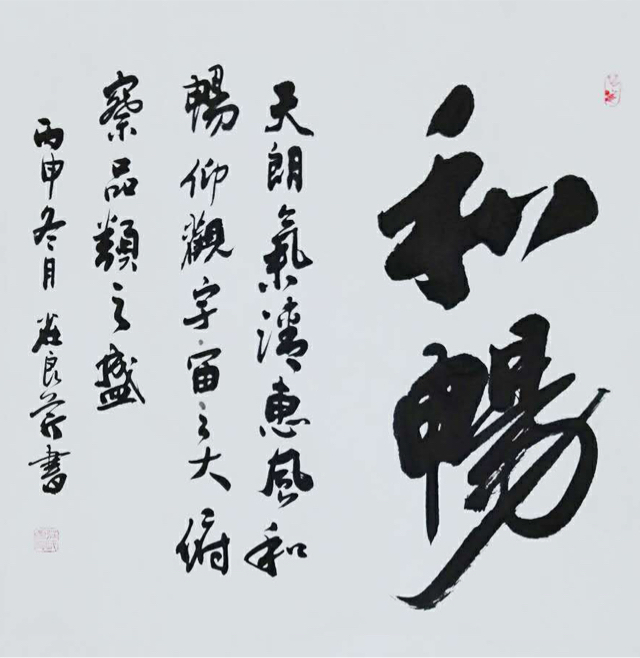 和暢
天朗氣清惠風和
暢仰觀宇宙之大俯
察品類之盛
丙申冬月良書